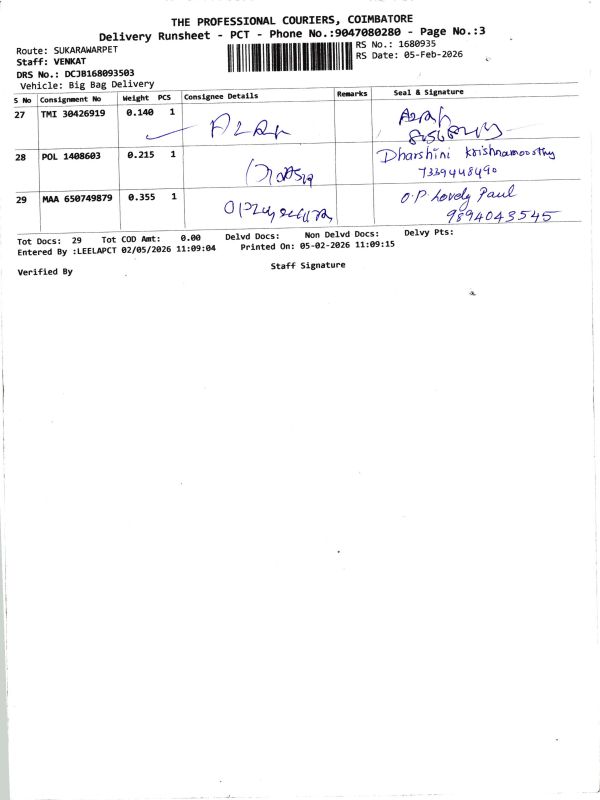 THE PROFESSIONAL COURIERS, COIMBATORE
Delivery Runsheet - PCT - Phone No.:9047080280 - Page No.:3
Route: SUKARAWARPET
RS No.: 1680935
Staff: VENKAT
RS Date: 05-Feb-2026
DRS No.: DCJB168093503
Vehicle: Big Bag Delivery
S No Consignment No Weight PCS Consignee Details Remarks Seal & Signature
27 TMI 30426919 0.140 1
28 POL 1408603 0.215 1 Dharshini Krishnamoorthy
7339448490
29 MAA 650749879 0.355 1 O.P. Lovely Paul
9894043545
Tot Docs: 29 Tot COD Amt: 0.00 Delvd Docs: Non Delvd Docs: Delvy Pts:
Entered By :LEELAPCT 02/05/2026 11:09:04 Printed On: 05-02-2026 11:09:15
Verified By Staff Signature